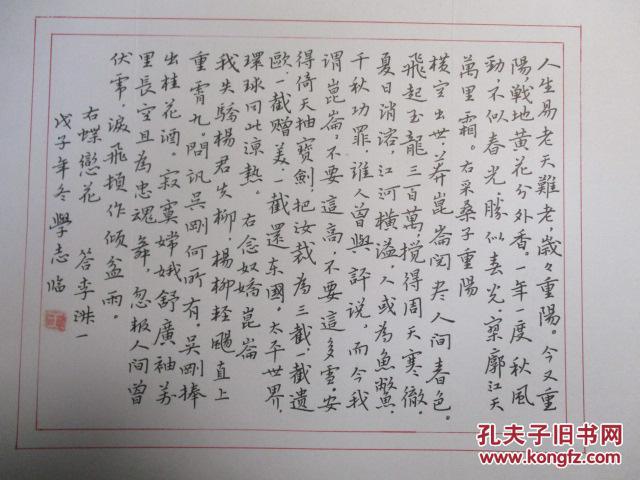 人生易老天難老，歲々重陽。今又重
陽，戰地黃花分外香。一年一度秋風
勁，不似春光，勝似春光，寥廓江天
萬里霜。右采桑子重陽
橫空出世，莽崑崙，閱尽人間春色。
飛起玉龍三百萬，攪得周天寒徹，
夏日消溶，江河橫溢，人或為魚鱉，
千秋功罪，誰人曾與評说，而今我
謂崑崙，不要這高，不要這多雪。安
得倚天抽寶劍，把汝裁為三截，一截遗
歐，一截贈美，一截還东國。太平世界，
環球同此涼热。右念奴嬌崑崙
我失驕楊君失柳，楊柳輕颺直上
重霄九。問訊吳剛何所有，吳剛捧
出桂花酒。寂寞嫦娥舒廣袖，萬
里長空且為忠魂舞，忽报人間曾
伏虎，淚飛頓作傾盆雨。
右蝶戀花 答李淑一
戊子年冬學志临
孔夫子旧书网
www.kongfz.com